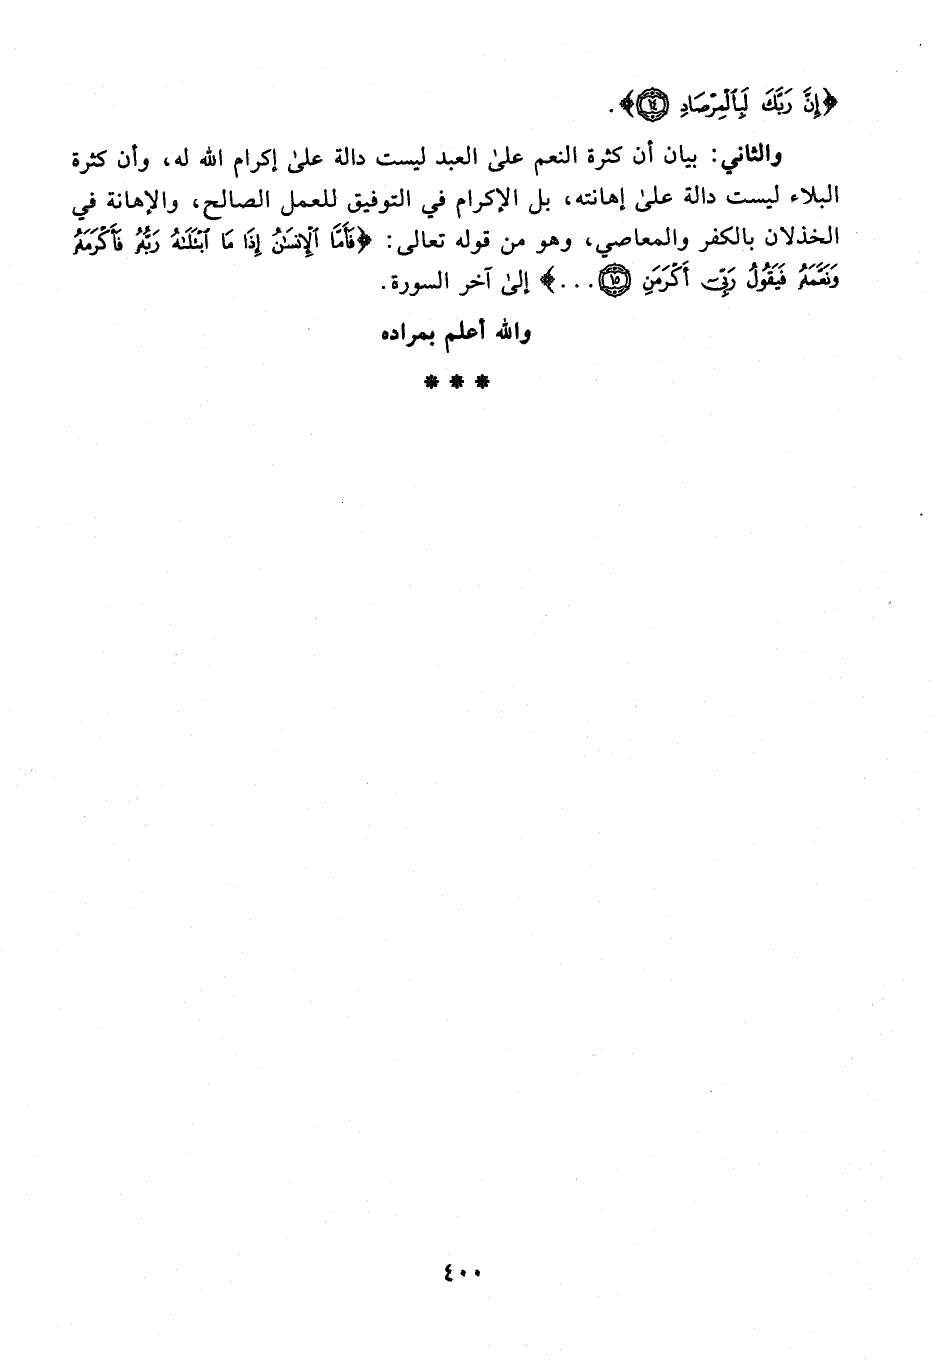 ﴿إِنَّ رَبَّكَ لَبِالْمِرْصَادِ ١٤﴾.
والثاني: بيان أن كثرة النعم على العبد ليست دالة على إكرام الله له، وأن كثرة
البلاء ليست دالة على إهانته، بل الإكرام في التوفيق للعمل الصالح، والإهانة في
الخذلان بالكفر والمعاصي، وهو من قوله تعالى: ﴿فَأَمَّا ٱلْإِنسَٰنُ إِذَا مَا ٱبْتَلَىٰهُ رَبُّهُۥ فَأَكْرَمَهُۥ
وَنَعَّمَهُۥ فَيَقُولُ رَبِّىٓ أَكْرَمَنِ ١٥...﴾ إلى آخر السورة.
والله أعلم بمراده
* * *
٤٠٠